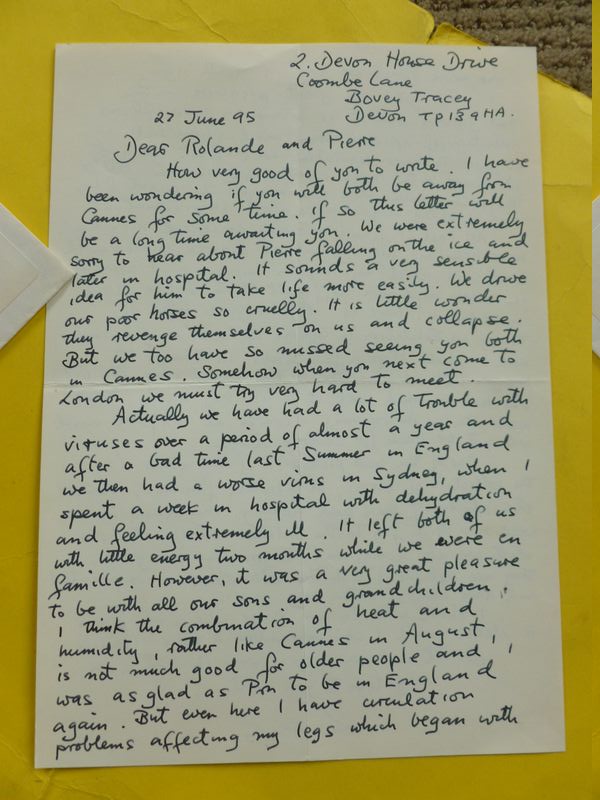 2. Devon House Drive
Coombe Lane
Bovey Tracey
Devon TP13 9HA.
27 June 95
Dear Rolande and Pierre
How very good of you to write. I have
been wondering if you will both be away from
Cannes for some time. If so this letter will
be a long time awaiting you. We were extremely
sorry to hear about Pierre falling on the ice and
later in hospital. It sounds a very sensible
idea for him to take life more easily. We drive
our poor horses so cruelly. It is little wonder
they revenge themselves on us and collapse.
But we too have so missed seeing you both
in Cannes. Somehow when you next come to
London we must try very hard to meet.
Actually we have had a lot of trouble with
viruses over a period of almost a year and
after a bad time last Summer in England
we then had a worse virus in Sydney, when I
spent a week in hospital with dehydration
and feeling extremely ill. It left both of us
with little energy two months while we were en
famille. However, it was a very great pleasure
to be with all our sons and grandchildren.
I think the combination of heat and
humidity, rather like Cannes in August,
is not much good for older people and I
was as glad as to be in England
again. But even here I have circulation
problems affecting my legs which began with